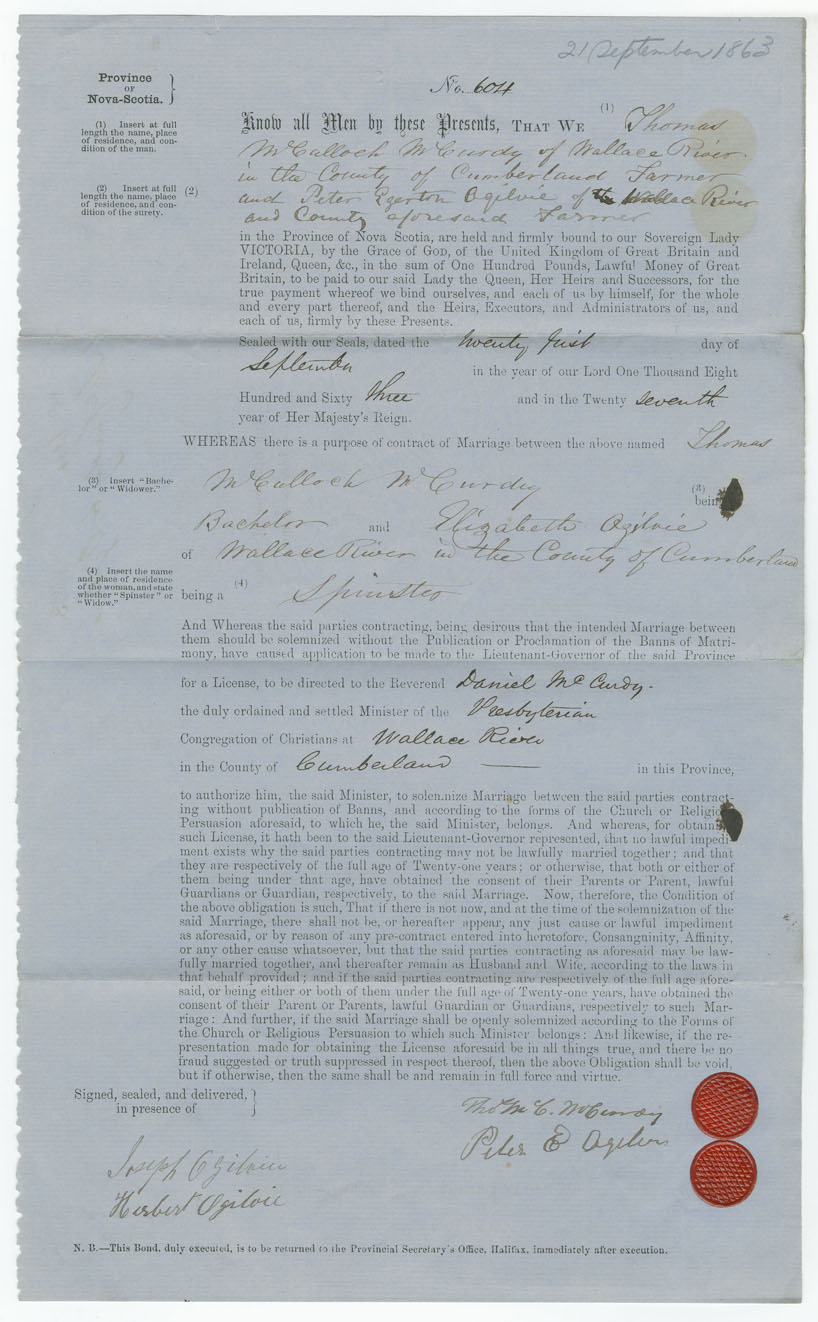 21 September 1863
Province
OF
Nova-Scotia.
No. 604
(1) Insert at full
length the name, place
of residence, and con-
dition of the man.
(1)
Know all Men by these Presents, THAT WE Thomas
McCulloch McCurdy of Wallace River
in the County of Cumberland Farmer
(2) Insert at full
length the name, place
of residence, and con-
dition of the surety.
(2)
and Peter Egerton Ogilvie of Wallace River
and County aforesaid Farmer
in the Province of Nova Scotia, are held and firmly bound to our Sovereign Lady
VICTORIA, by the Grace of GOD, of the United Kingdom of Great Britain and
Ireland, Queen, &c., in the sum of One Hundred Pounds, Lawful Money of Great
Britain, to be paid to our said Lady the Queen, Her Heirs and Successors, for the
true payment whereof we bind ourselves, and each of us by himself, for the whole
and every part thereof, and the Heirs, Executors, and Administrators of us, and
each of us, firmly by these Presents.
Sealed with our Seals, dated the twenty first day of
September in the year of our Lord One Thousand Eight
Hundred and Sixty three and in the Twenty seventh
year of Her Majesty's Reign.
WHEREAS there is a purpose of contract of Marriage between the above named Thomas
(3) Insert "Bache-
lor" or "Widower."
McCulloch McCurdy (3) being
Bachelor and Elizabeth Ogilvie
of Wallace River in the County of Cumberland
(4) Insert the name
and place of residence
of the woman, and state
whether "Spinster" or
"Widow."
being a (4) Spinster
And Whereas the said parties contracting, being desirous that the intended Marriage between
them should be solemnized without the Publication or Proclamation of the Banns of Matri-
mony, have caused application to be made to the Lieutenant-Governor of the said Province
for a License, to be directed to the Reverend Daniel McCurdy.
the duly ordained and settled Minister of the Presbyterian
Congregation of Christians at Wallace River
in the County of Cumberland — in this Province,
to authorize him, the said Minister, to solemnize Marriage between the said parties contract-
ing without publication of Banns, and according to the forms of the Church or Religious
Persuasion aforesaid, to which he, the said Minister, belongs. And whereas, for obtaining
such License, it hath been to the said Lieutenant-Governor represented, that no lawful impedi-
ment exists why the said parties contracting may not be lawfully married together; and that
they are respectively of the full age of Twenty-one years; or otherwise, that both or either of
them being under that age, have obtained the consent of their Parents or Parent, lawful
Guardians or Guardian, respectively, to the said Marriage. Now, therefore, the Condition of
the above obligation is such, That if there is not now, and at the time of the solemnization of the
said Marriage, there shall not be, or hereafter appear, any just cause or lawful impediment
as aforesaid, or by reason of any pre-contract entered into heretofore, Consanguinity, Affinity,
or any other cause whatsoever, but that the said parties contracting as aforesaid may be law-
fully married together, and thereafter remain as Husband and Wife, according to the laws in
that behalf provided; and if the said parties contracting are respectively of the full age afore-
said, or being either or both of them under the full age of Twenty-one years, have obtained the
consent of their Parent or Parents, lawful Guardian or Guardians, respectively to such Mar-
riage: And further, if the said Marriage shall be openly solemnized according to the Forms of
the Church or Religious Persuasion to which such Minister belongs: And likewise, if the re-
presentation made for obtaining the License aforesaid be in all things true, and there be no
fraud suggested or truth suppressed in respect thereof, then the above Obligation shall be void,
but if otherwise, then the same shall be and remain in full force and virtue.
Signed, sealed, and delivered,
in presence of
Thos McC. McCurdy
Peter E Ogilvie
Joseph Ogilvie
Herbert Ogilvie
N. B.—This Bond, duly executed, is to be returned to the Provincial Secretary's Office, Halifax, immediately after execution.